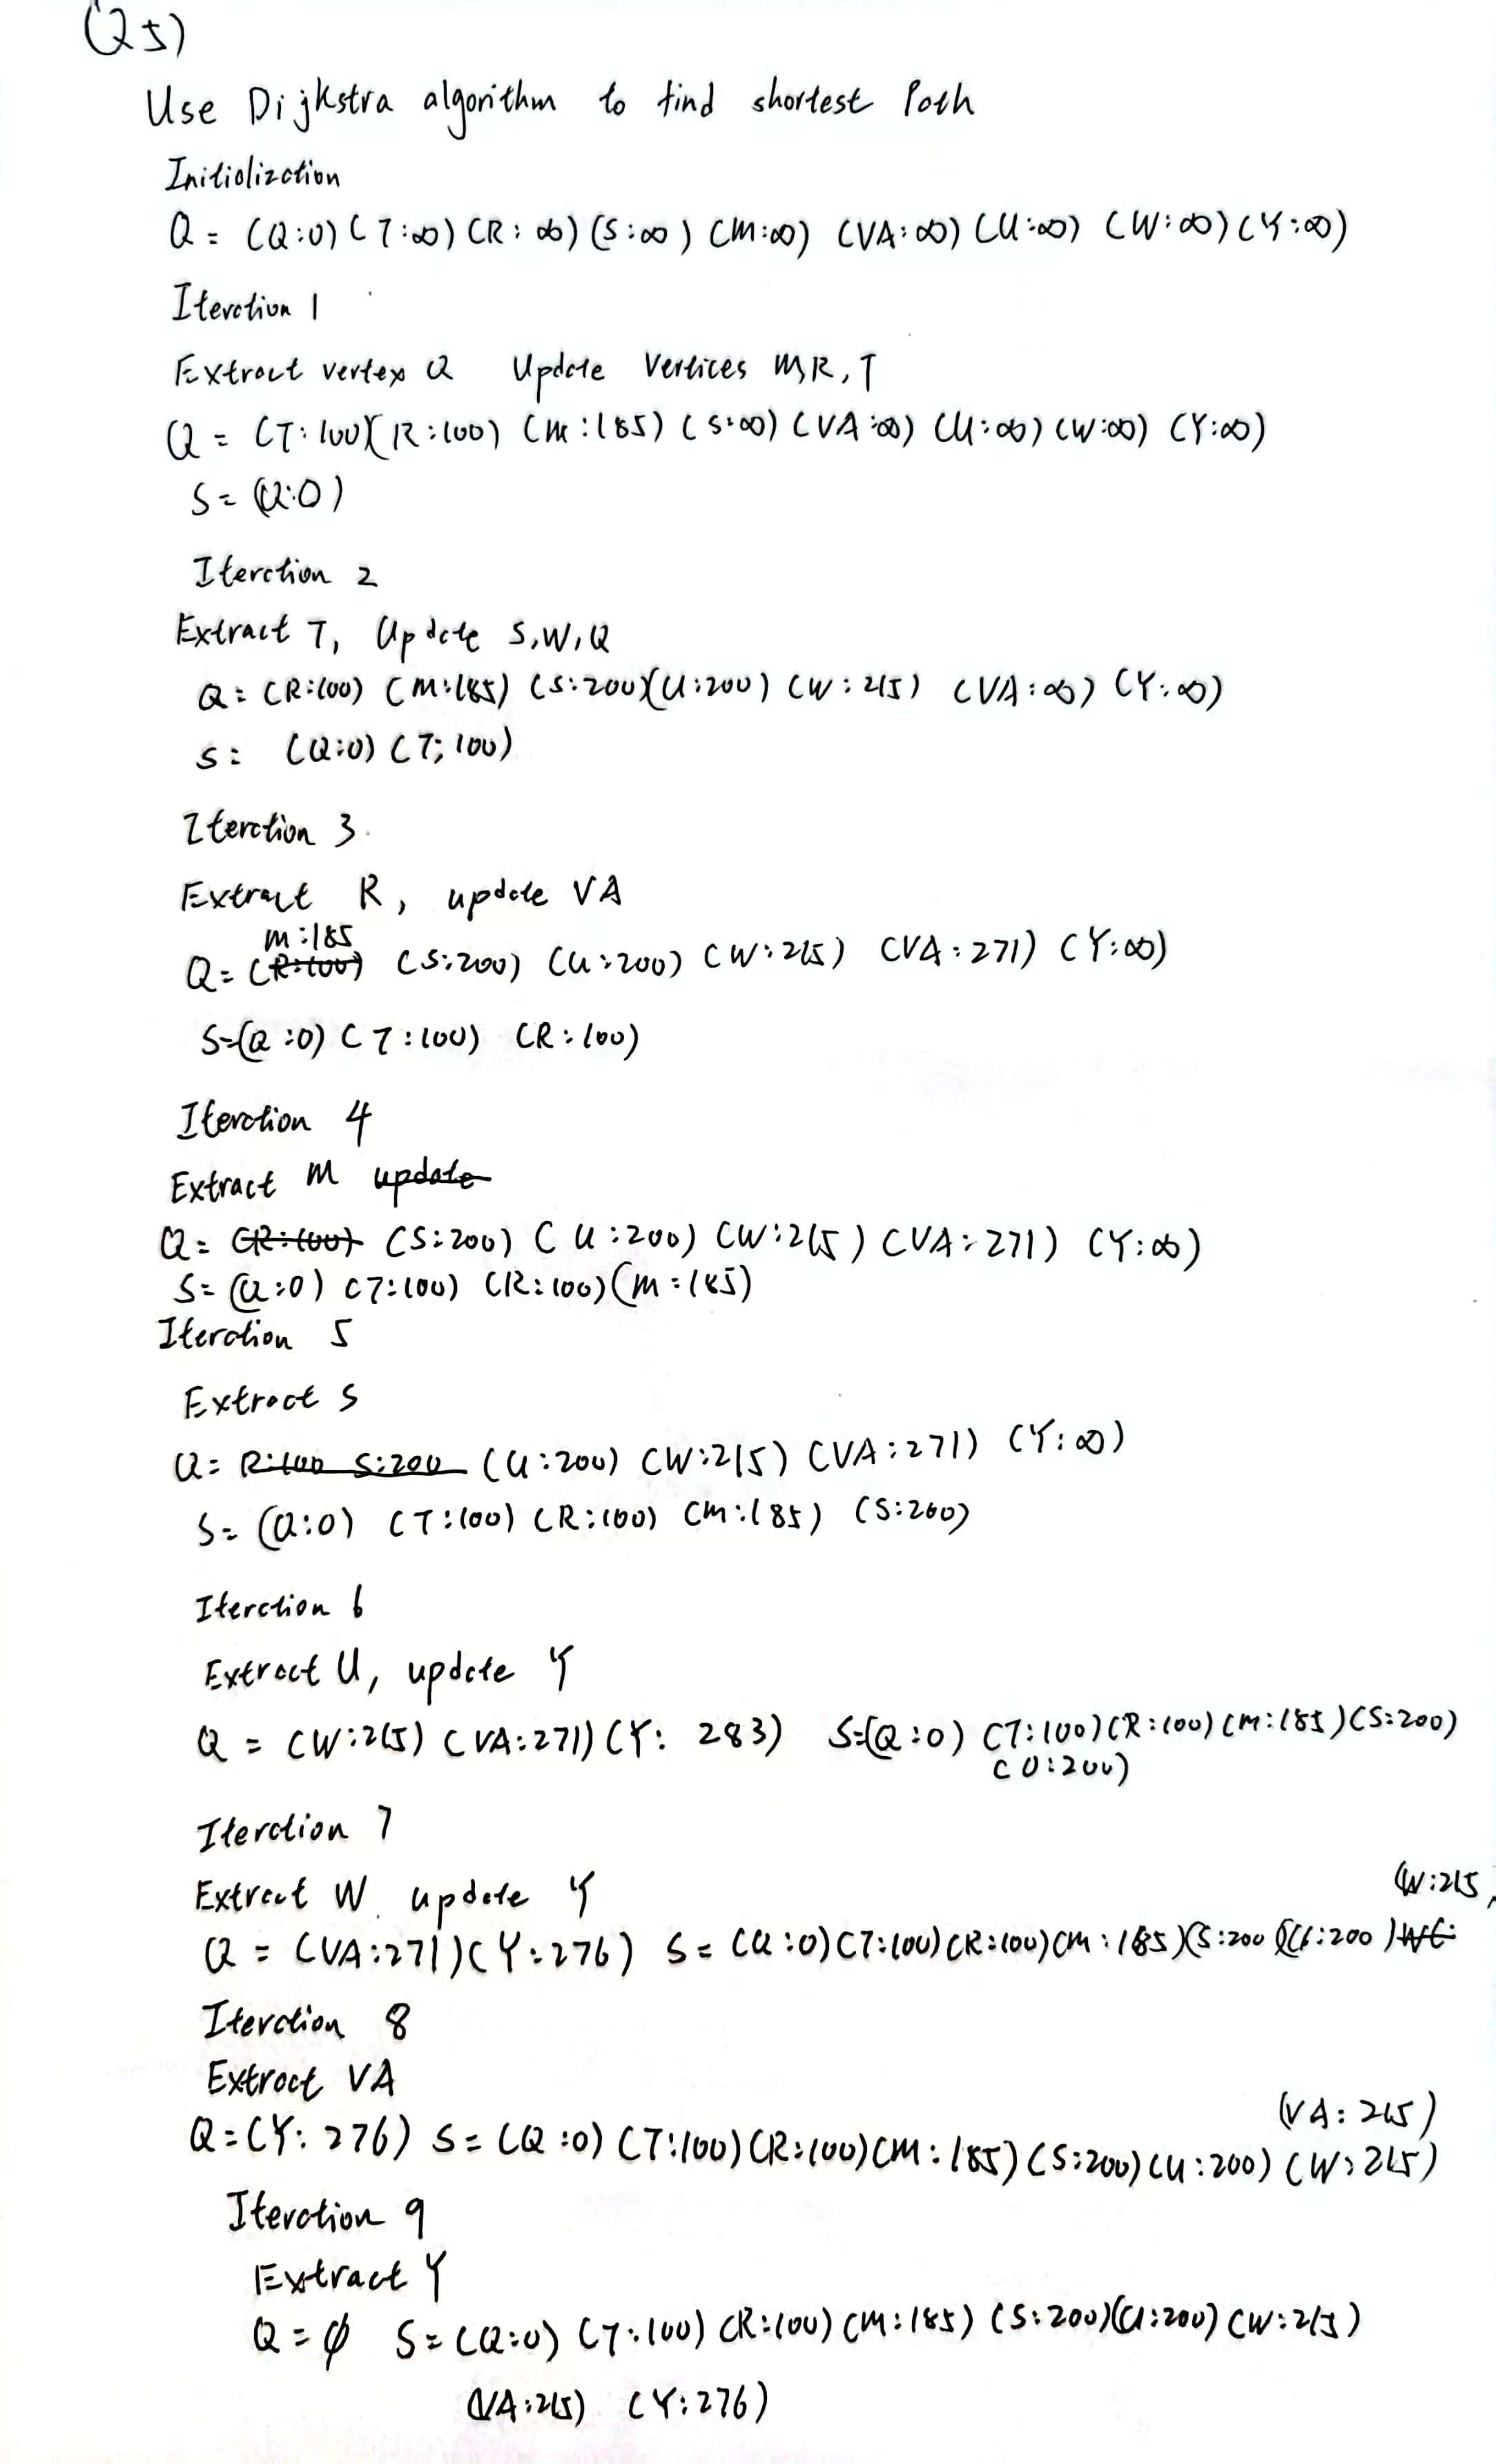 (Q5)
Use Dijkstra algorithm to find shortest Path
Initialization
Q = (Q:0) (T:∞) (R:∞) (S:∞) (M:∞) (VA:∞) (U:∞) (W:∞) (Y:∞)
Iteration 1
Extract vertex Q Update Vertices M,R,T
Q = (T:100)(R:100) (M:185) (S:∞) (VA:∞) (U:∞) (W:∞) (Y:∞)
S = (Q:0)
Iteration 2
Extract T, Update S,W,Q
Q = (R:100) (M:185) (S:200)(U:200) (W:215) (VA:∞) (Y:∞)
S = (Q:0) (T:100)
Iteration 3
Extract R, update VA
M:185
Q = (R:100) (S:200) (U:200) (W:215) (VA:271) (Y:∞)
S=(Q:0) (T:100) (R:100)
Iteration 4
Extract M update
Q = (R:100) (S:200) (U:200) (W:215) (VA:271) (Y:∞)
S = (Q:0) (T:100) (R:100)(M:185)
Iteration 5
Extract S
Q = R:100 S:200 (U:200) (W:215) (VA:271) (Y:∞)
S = (Q:0) (T:100) (R:100) (M:185) (S:200)
Iteration 6
Extract U, update Y
Q = (W:215) (VA:271)(Y: 283) S=(Q:0) (T:100)(R:100)(M:185)(S:200)
(U:200)
Iteration 7
(W:215)
Extract W update Y
Q = (VA:271)(Y:276) S = (Q:0)(T:100)(R:100)(M:185)(S:200)(U:200)
Iteration 8
Extract VA
(VA:215)
Q=(Y:276) S= (Q:0) (T:100)(R:100)(M:185)(S:200)(U:200) (W:215)
Iteration 9
Extract Y
Q = ∅ S = (Q:0) (T:100) (R:100) (M:185) (S:200)(U:200) (W:215)
(VA:215) (Y:276)